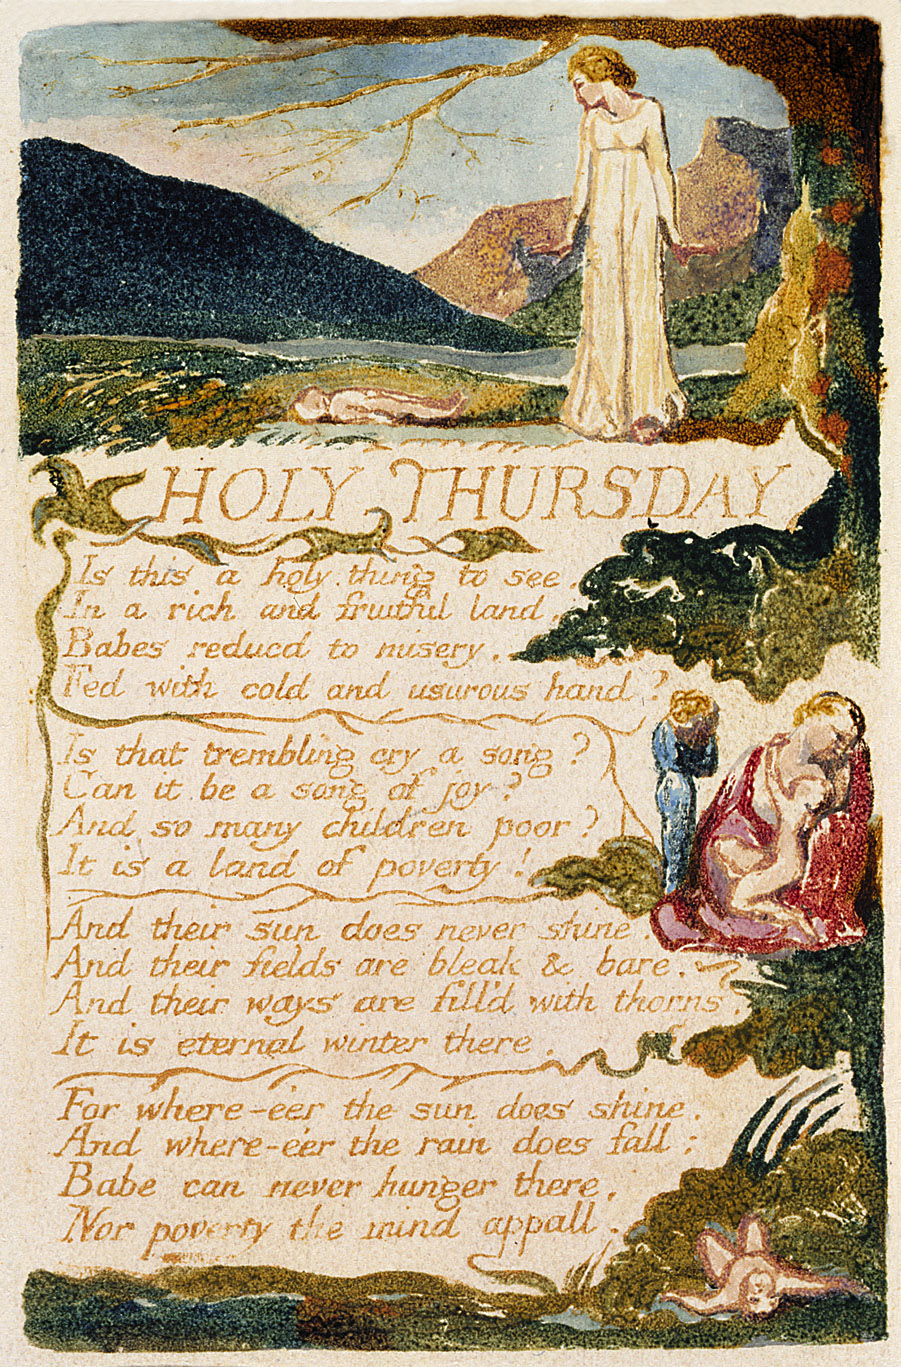 HOLY THURSDAY
Is this a holy thing to see.
In a rich and fruitful land.
Babes reducd to misery.
Fed with cold and usurous hand?
Is that trembling cry a song?
Can it be a song of joy?
And so many children poor?
It is a land of poverty!
And their sun does never shine.
And their fields are bleak & bare.
And their ways are fill'd with thorns.
It is eternal winter there.
For where-e'er the sun does shine.
And where-e'er the rain does fall:
Babe can never hunger there,
Nor poverty the mind appall.